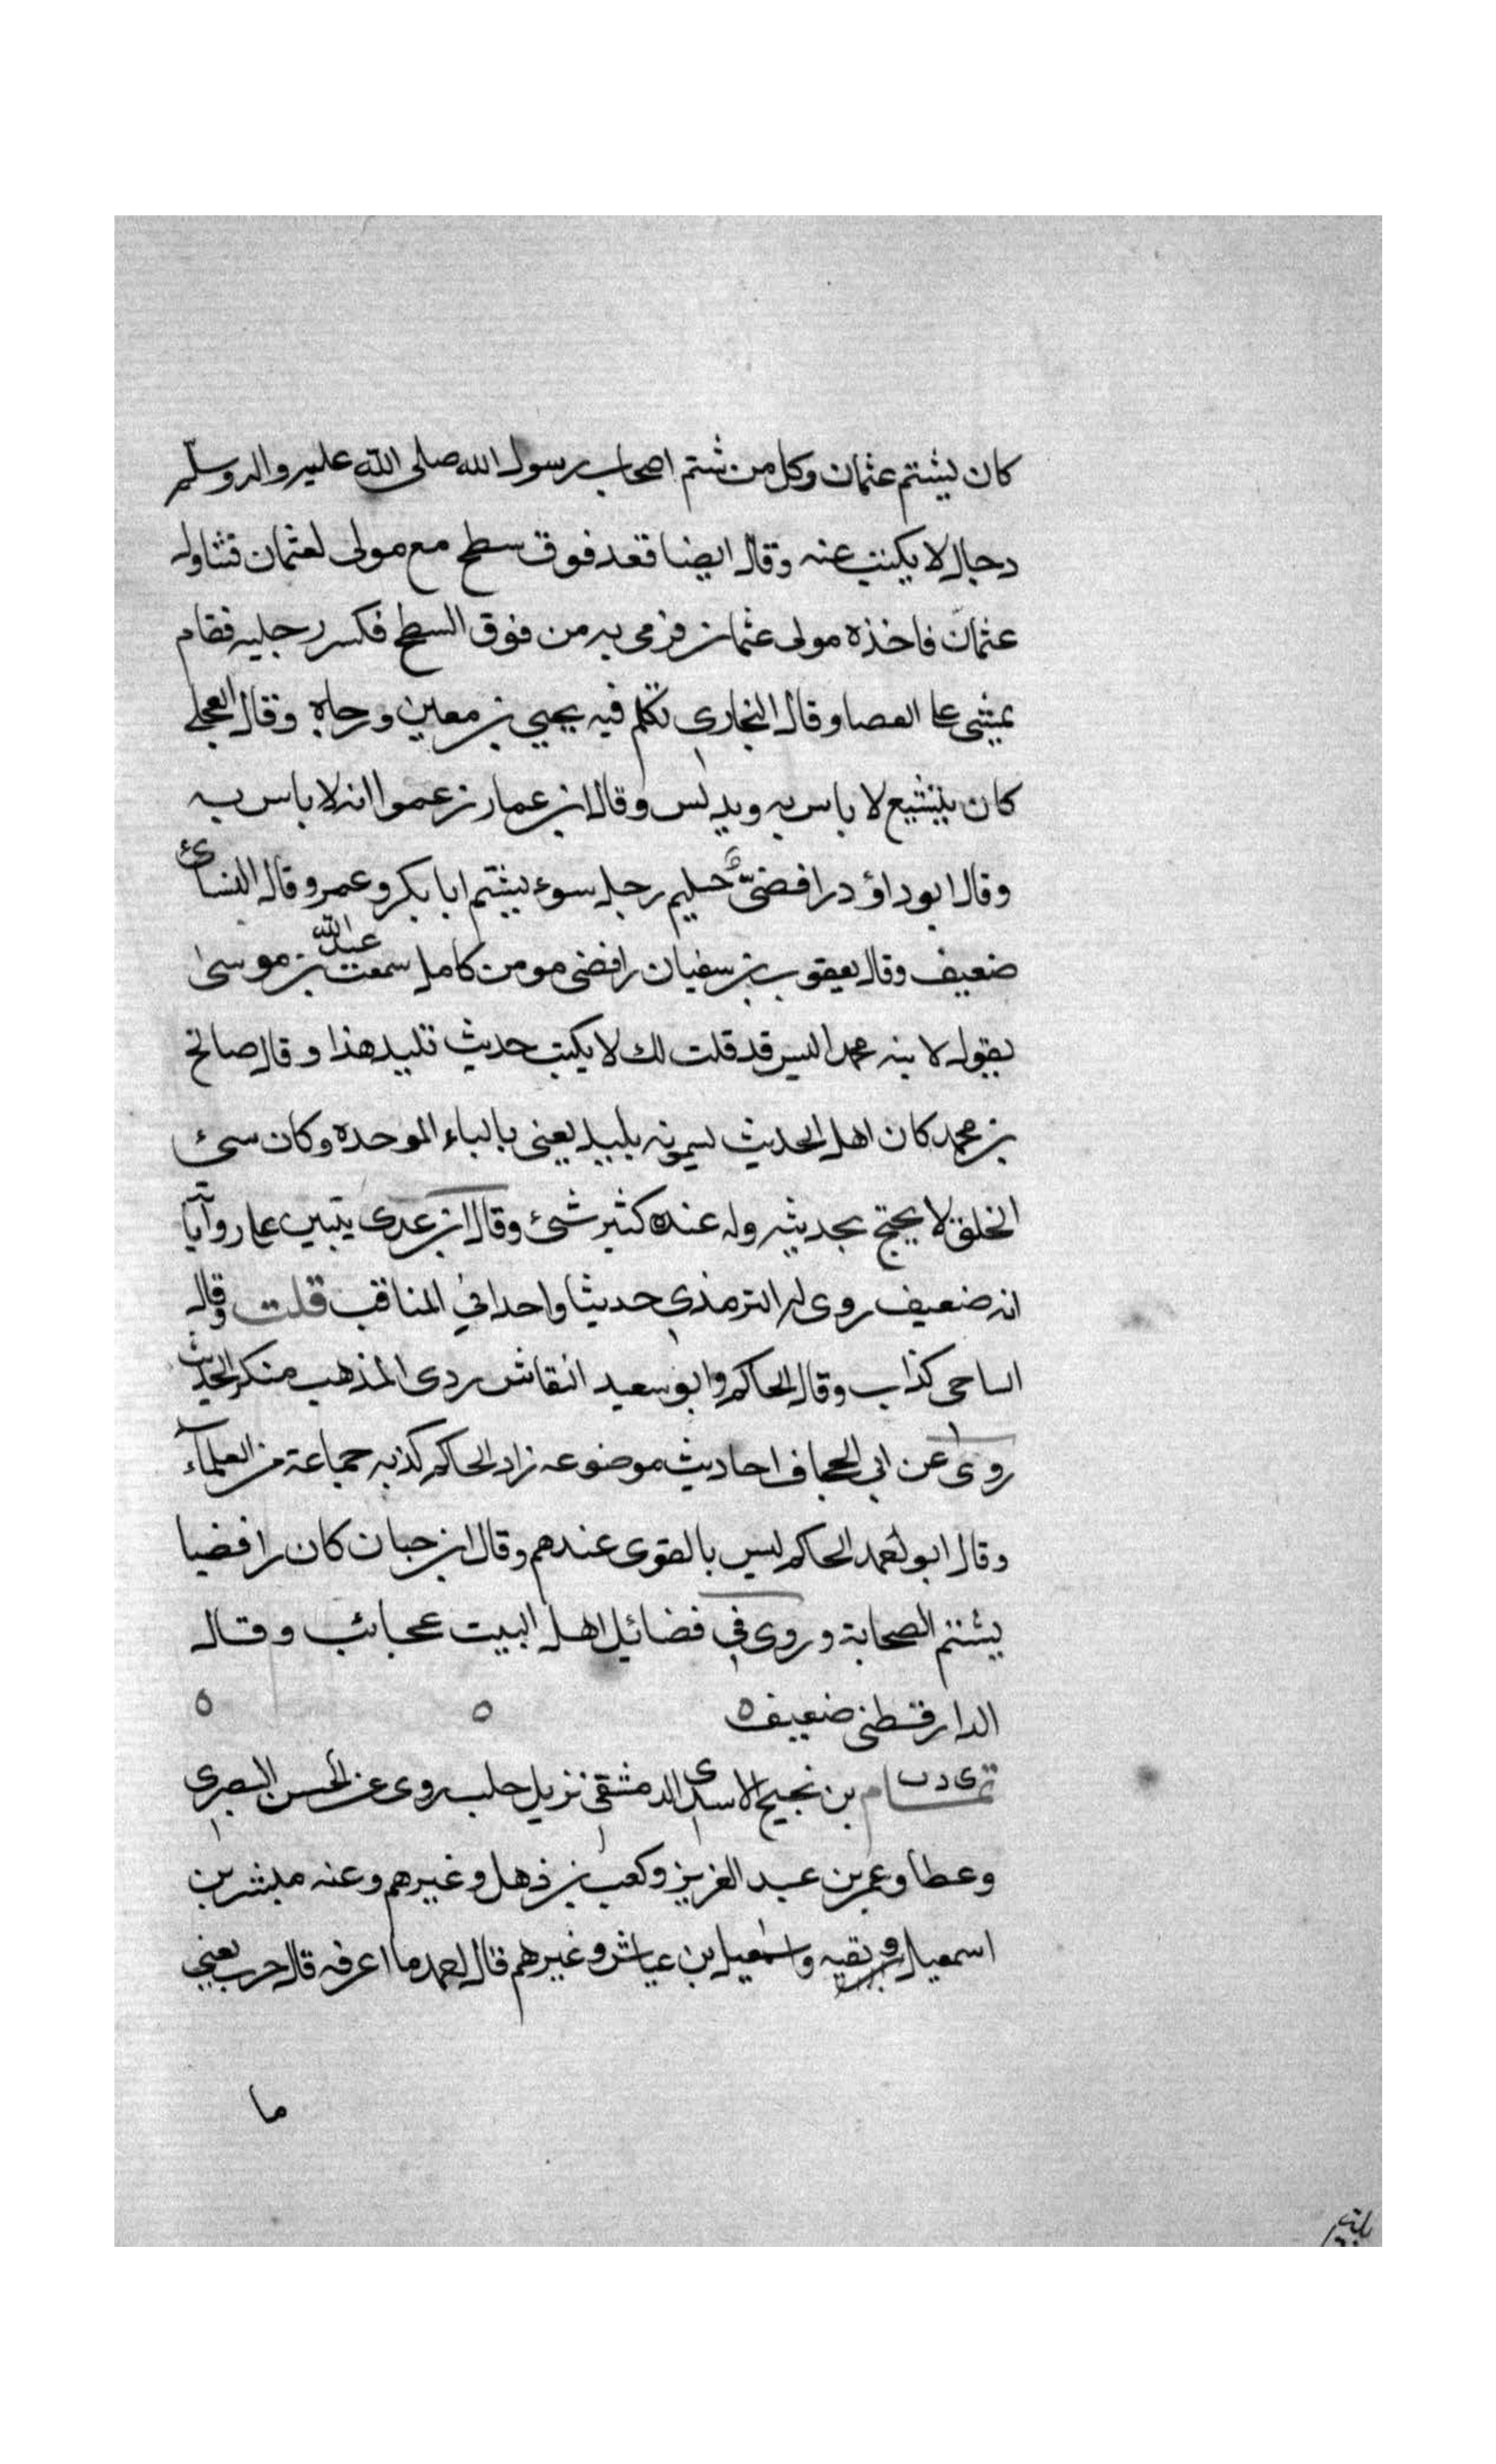 كان يشتم عثمان وكل من شتم اصحاب رسول الله صلى الله عليه واله وسلم
دجال لا يكتب عنه وقال ايضا قعد فوق سطح مع مولى لعثمان فتناول
عثمان فاخذه مولى عثمان فرمى به من فوق السطح فكسر رجليه فقام
يمشي على العصا وقال البخاري تكلم فيه يحيى بن معين ورماه وقال العجلي
كان يتشيع لا باس به ويدلس وقال ابن عمار زعموا انه لا باس به
وقال ابو داؤد رافضي رجل سوء يشتم ابا بكر وعمر وقال النسائي
ضعيف وقال يعقوب بن سفيان رافضي مومن كامل سمعت عبدالله بن موسى
يقول لابنه محمد اليس قد قلت لك لا يكتب حديث تليد هذا وقال صالح
بن محمد كان اهل الحديث يسمونه بليد يعني بالباء الموحدة وكان سئ
الخلق لا يحتج بحديثه وله عنده كثير شئ وقال ابن عدى يتبين على رواياته
انه ضعيف روى له الترمذي حديثا واحدا في المناقب قلت وقال
الساجي كذاب وقال الحاكم وابو سعيد النقاش ردى المذهب منكر الحديث
روى عن ابي الجحاف احاديث موضوعه زاد الحاكم كذبه جماعة من العلمآء
وقال ابو احمد الحاكم ليس بالقوى عندهم وقال ابن حبان كان رافضيا
يشتم الصحابة وروى في فضائل اهل البيت عجائب وقال
الدارقطني ضعيف ه ه ه
تمام بن نجيح الاسدى الدمشقي نزيل حلب روى عن الحسن البصري
وعطا وعمر بن عبد العزيز وكعب بن ذهل وغيرهم وعنه مبشر بن
اسمعيل وبقيه واسمعيل بن عياش وغيرهم قال احمد ما اعرفه قال حرب يعني
ما